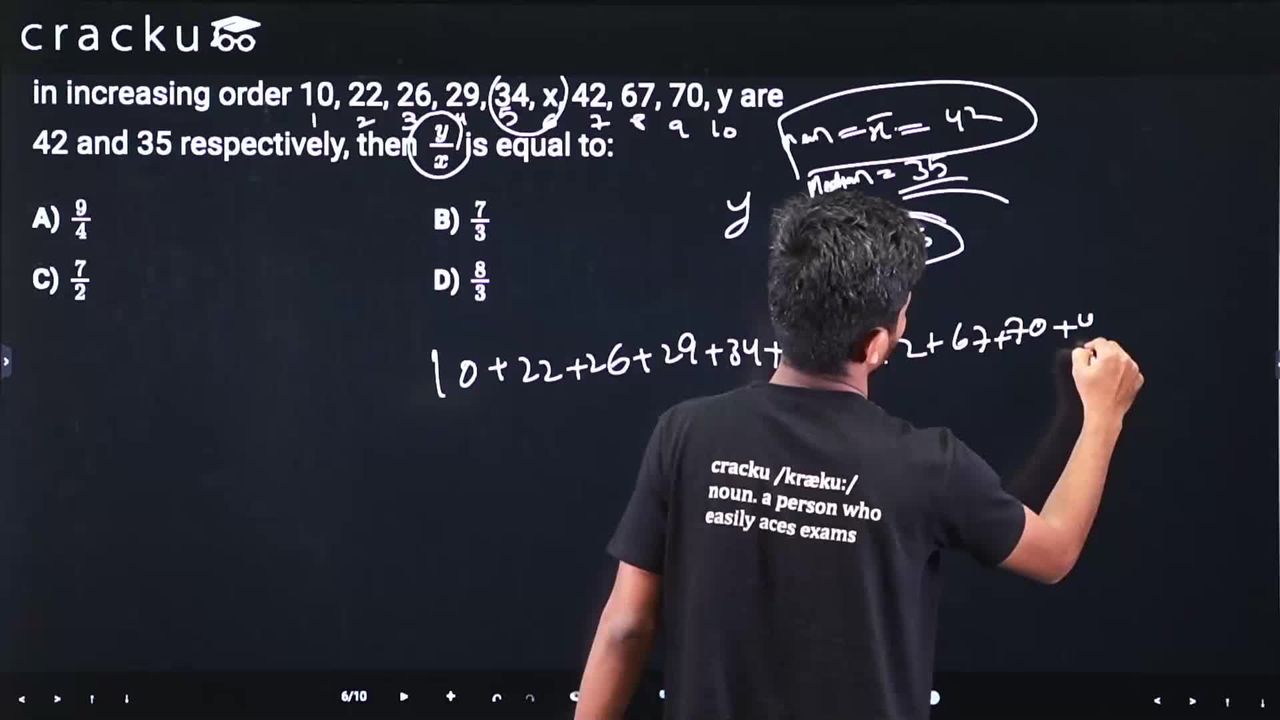 cracku
in increasing order 10, 22, 26, 29, 34, x, 42, 67, 70, y are
1 2 3 4 5 6 7 8 9 10
42 and 35 respectively, then y/x is equal to:
mean = x̄ = 42
Median = 35
A) 9/4
B) 7/3
C) 7/2
D) 8/3
y
10+22+26+29+34+ 2+67+70+y
cracku /kræku:/
noun. a person who
easily aces exams
6/10